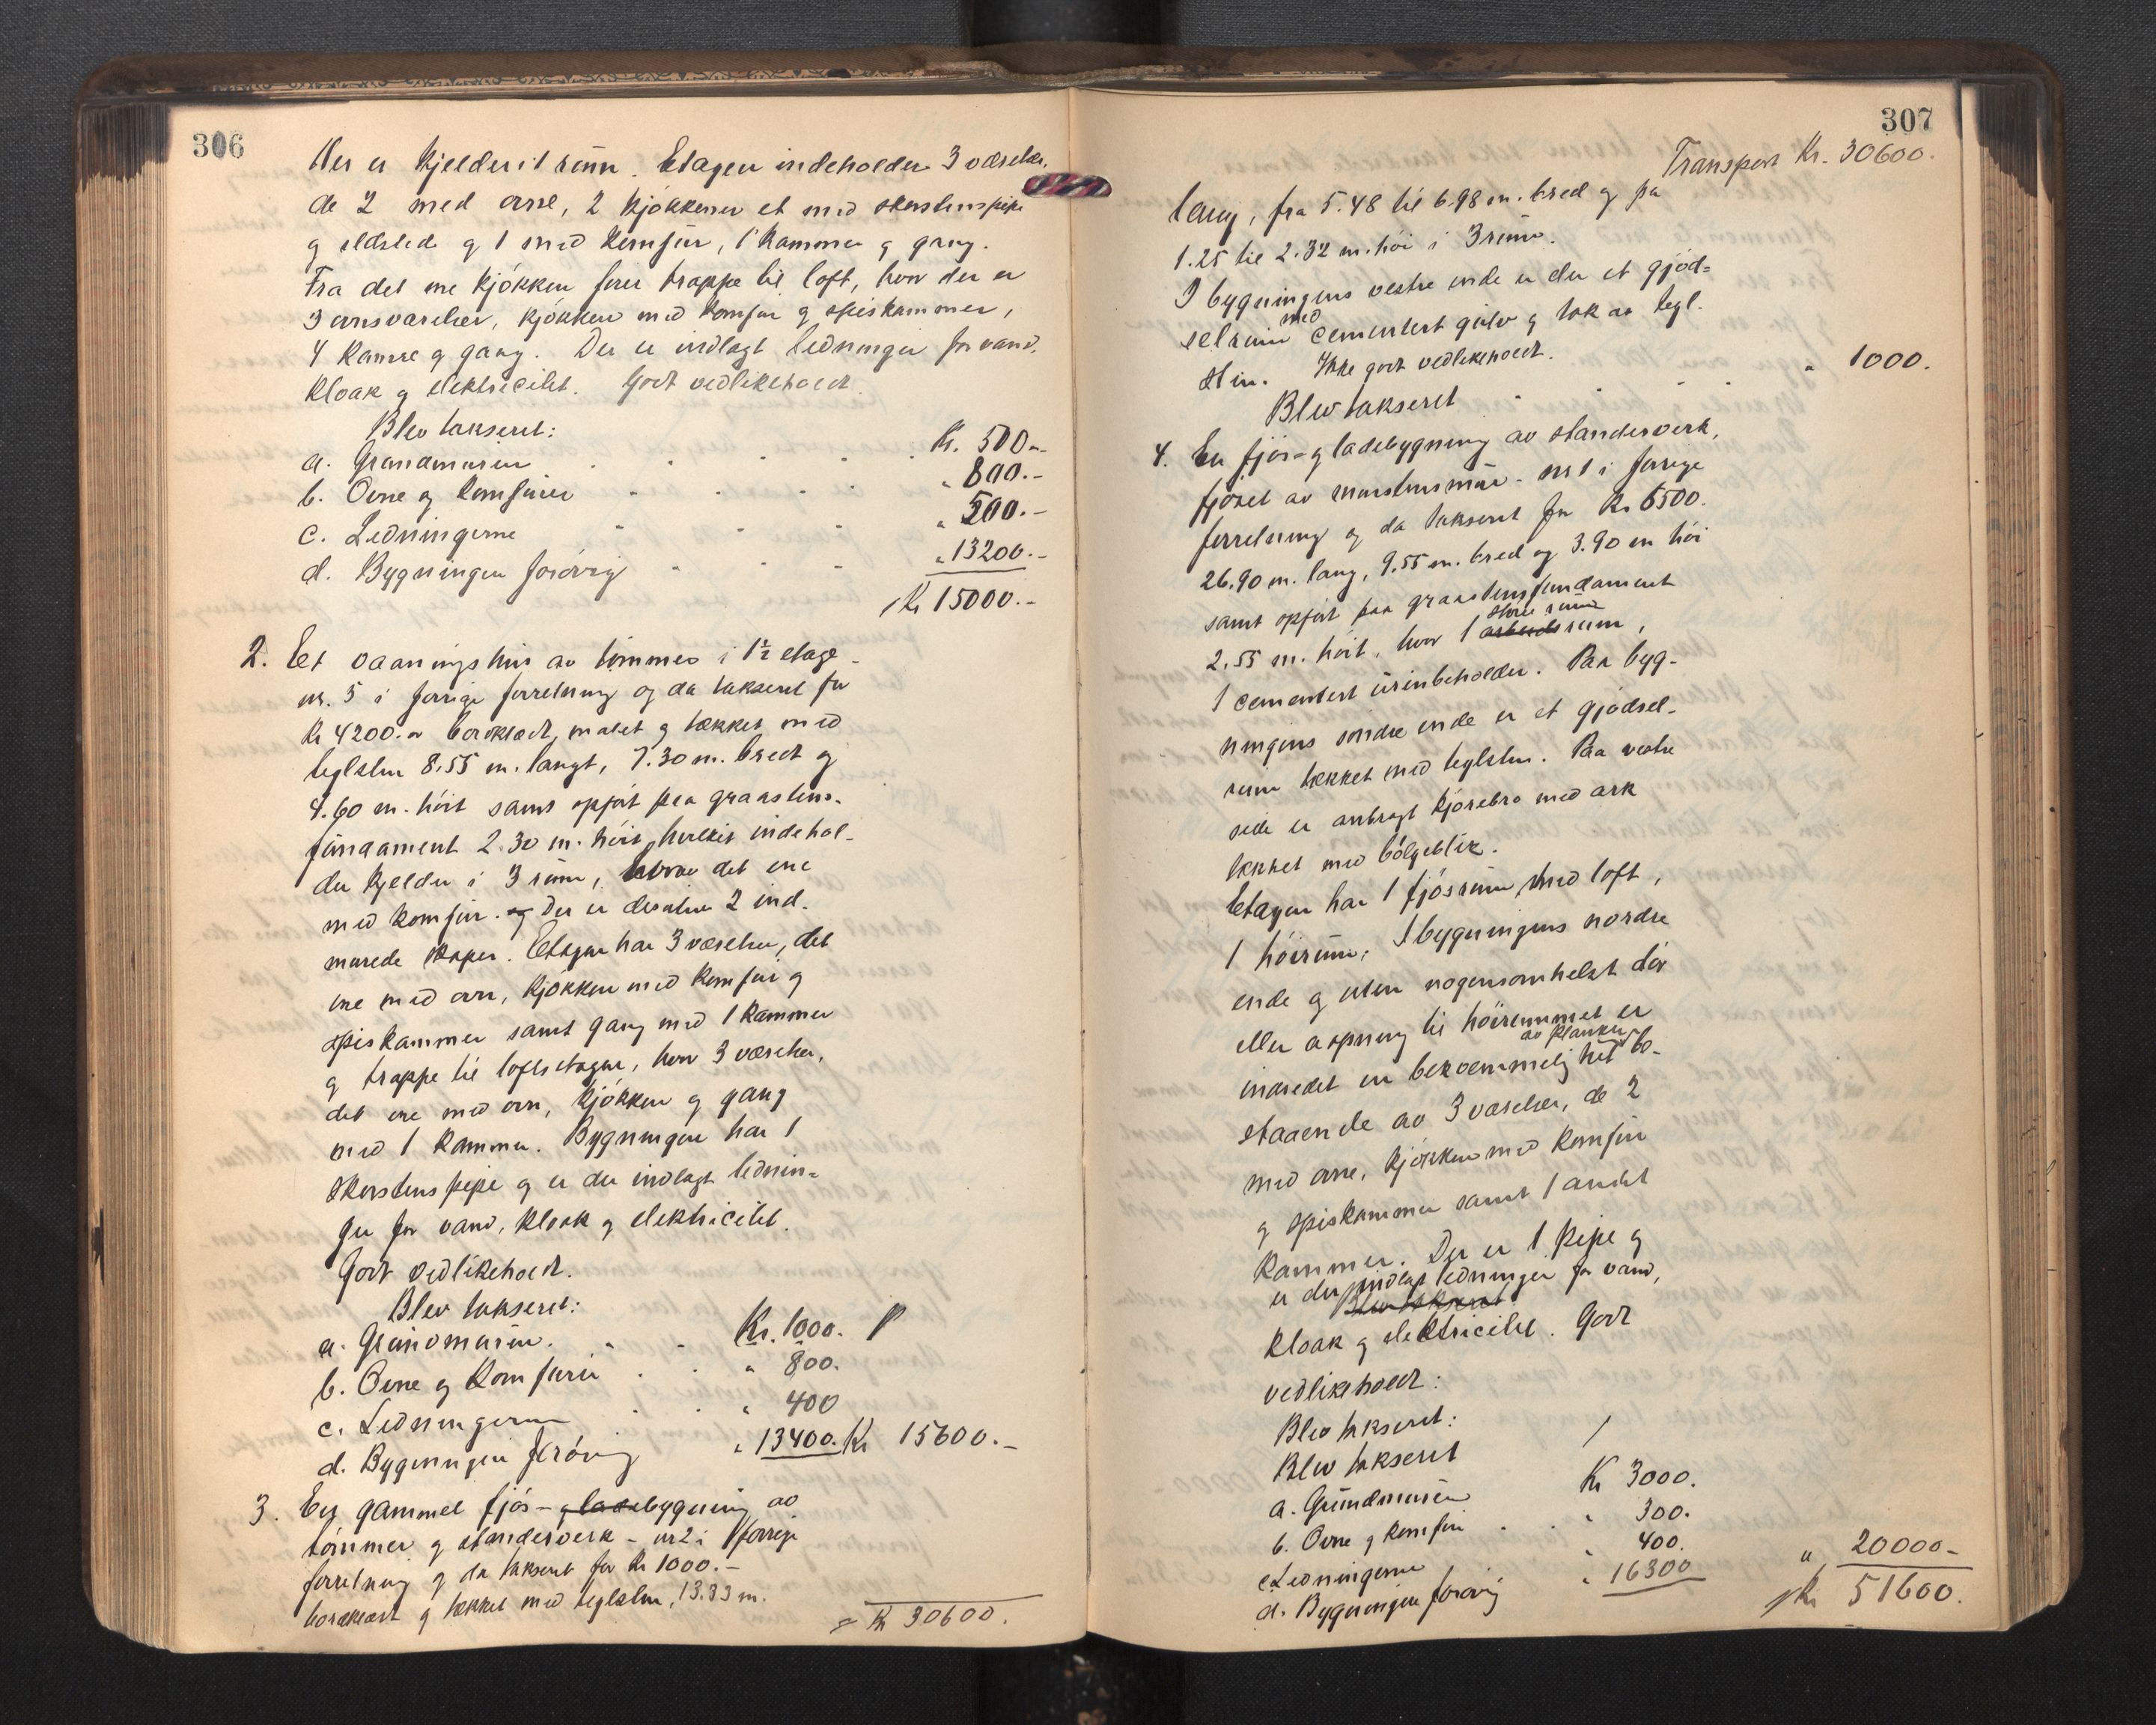 306
Her er kjelder i et rum. Etagen indeholder 3 værelser,
de 2 med ovne, 2 kjøkkener et med skorstenspipe
og ildsted og 1 med komfur, 1 kammer og gang.
Fra det ene kjøkken fører trappe til loft, hvor der er
3 ovnsværelser, kjøkken med komfur og spiskammer,
4 kamre og gang. Der er indlagt ledninger for vand,
kloak og elektricitet. Godt vedlikeholdt
Blev takseret:
a. Grundmuren Kr. 500.-
b. Ovne og komfurer " 800.-
c. Ledningerne " 500.-
d. Bygningen forøvrig " 13200.-
Kr 15000.-
2. Et vaaningshus av tømmer i 1½ etage -
nr. 5 i forrige forretning og da takseret for
Kr 4200.- bordklædt, malet og tækket med
teglsten 8.55 m. langt, 7.30 m. bredt og
4.60 m. høit samt opført paa graastens-
fundament 2.30 m. høit, hvilket indehol-
der kjelder i 3 rum, hvorav det ene
med komfur. og Der er desuten 2 ind-
murede skaper. Etagen har 3 værelser, det
ene med ovn, kjøkken med komfur og
spiskammer samt gang med 1 kammer
og trappe til loftsetagen, hvor 3 værelser,
det ene med ovn, kjøkken og gang
med 1 kammer. Bygningen har 1
skorstenspipe og er der indlagt lednin-
ger for vand, kloak og elektricitet.
Godt vedlikeholdt.
Blev takseret:
a. Grundmuren. Kr. 1000.
b. Ovne og Komfurer " 800.
c. Ledningerne " 400
d. Bygningen forøvrig " 13400. Kr 15600.-
3. En gammel fjøs- og ladebygning av
tømmer og standerverk - nr 2 i forrige
forretning og da takseret for Kr 1000.-
bordklædt og tækket med teglsten, 13.33 m.
= Kr 30600.
307
Transport Kr. 30600.
lang, fra 5.48 til 6.98 m. bred og fra
1.25 til 2.32 m. høi i 3 rum.
I bygningens vestre ende er der et gjød-
selrum med cementert gulv og tak av tegl-
sten. Ikke godt vedlikeholdt.
Blev takseret " 1000.
4. En fjøs- og ladebygning av standerverk,
fjøset av murstensmur - nr 1 i forrige
forretning og da takseret for Kr 6500.
26.90 m. lang, 9.55 m. bred og 3.90 m høi
samt opført paa graastensfundament
2.55 m. høit, hvor 1 arbeidsrum, store rum
1 cementert urinbeholder. Paa byg-
ningens søndre ende er et gjødsel-
rum tækket med teglsten. Paa vestre
side er anbragt kjørebro med ark
tækket med bølgeblik.
Etagen har 1 fjøsrum med loft,
1 høirum; I bygningens nordre
ende og uten nogensomhelst dør
eller aapning til høirummet er
indredet en bekvemmelighet av planker be-
staaende av 3 værelser, de 2
med ovne, kjøkken med komfur
og spiskammer samt 1 andet
kammer. Der er 1 pipe og
er der indlagt ledninger for vand,
Blev takseret
kloak og elektricitet. Godt
vedlikeholdt:
Blev takseret:
Blev takseret
a. Grundmuren Kr 3000.
b. Ovne og komfur " 300.
c. Ledningerne " 400.
d. Bygningen forøvrig " 16300 " 20000-
Kr 51600.